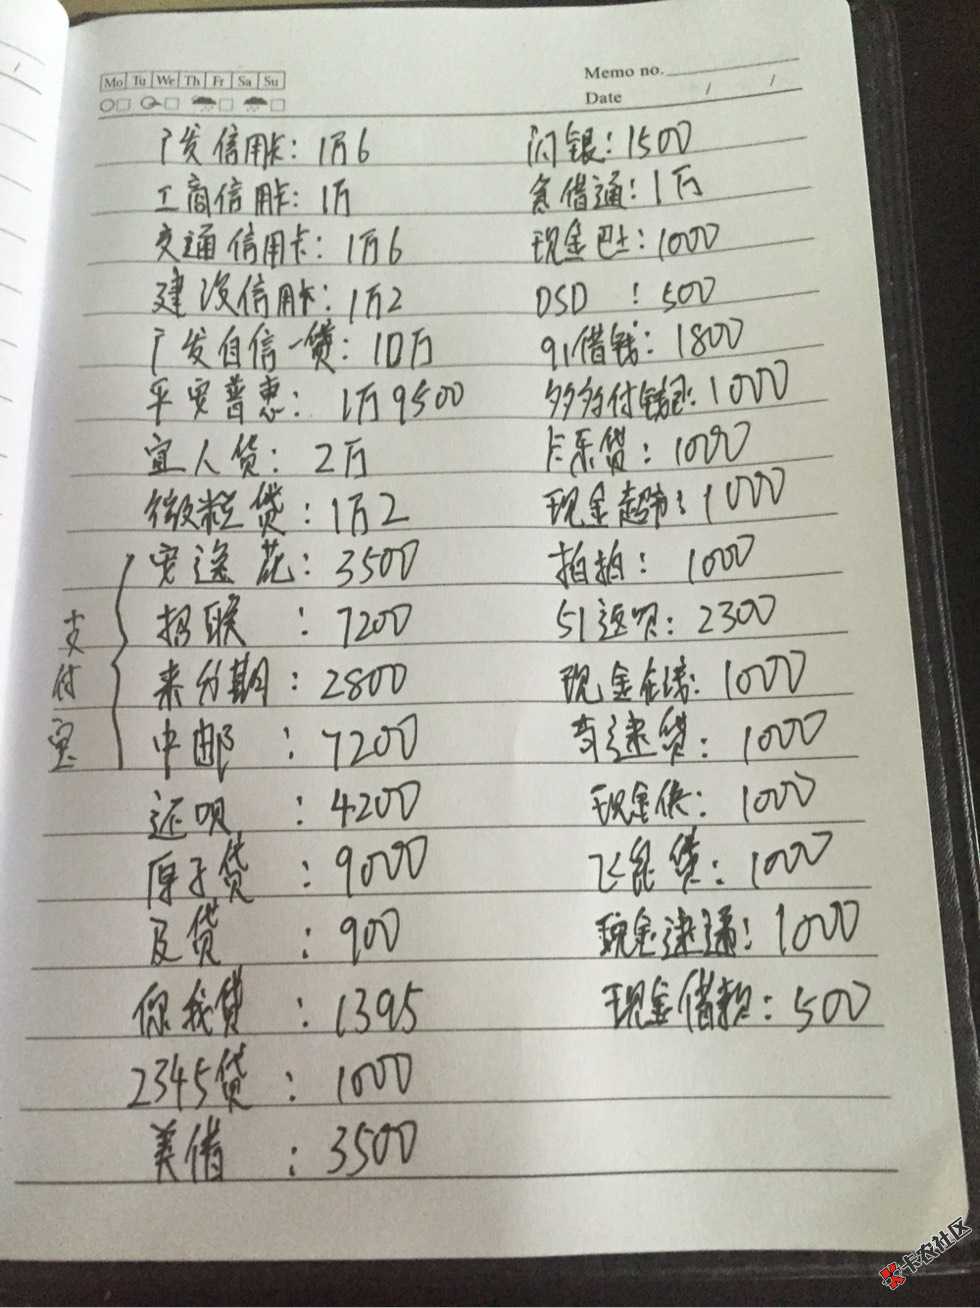 Mo Tu We Th Fr Sa Su
Memo no.
Date / /
广发信用卡：1万6
工商信用卡：1万
交通信用卡：1万6
建设信用卡：1万2
广发自信一贷：10万
平安普惠：1万9500
宜人贷：2万
微粒贷：1万2
支付宝
安逸花：3500
招联：7200
来分期：2800
中邮：7200
还呗：4200
原子贷：9000
及贷：900
你我贷：1395
2345贷：1000
美借：3500
闪银：1500
急借通：1万
现金巴士：1000
DSD：500
91借钱：1800
多多付钱包：1000
卡乐贷：1000
现金超市：1000
拍拍：1000
51返呗：2300
现金：1000
奇速贷：1000
现金侠：1000
飞鼠贷：1000
现金速通：1000
现金借款：500
卡农社区